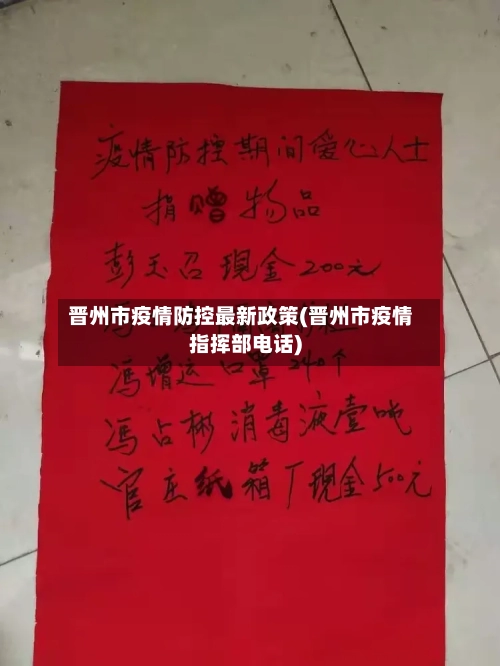 疫情防控期间爱心人士
捐赠物品
彭玉召现金200元
晋州市疫情防控最新政策(晋州市疫情
指挥部电话)
冯增运口罩240个
冯占彬消毒液壹吨
官庄纸箱厂现金500元